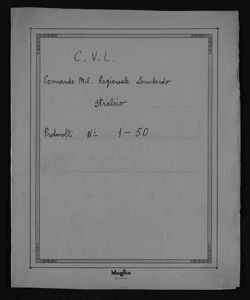 C. V. L.
Comando Mil. Regionale Lombardo
Stralcio
Protocolli N° 1-50
Maglia